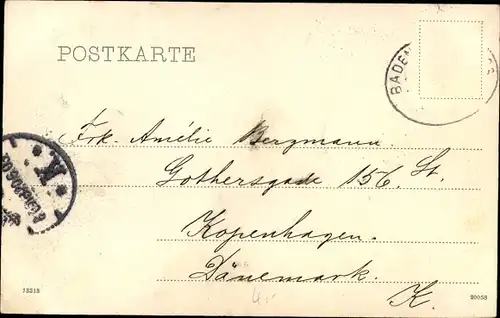 POSTKARTE
BADEN
Frk. Amélie Bergmann.
Gothersgade 156. St.
Kopenhagen.
Dänemark.
K.
K.
12313
20953